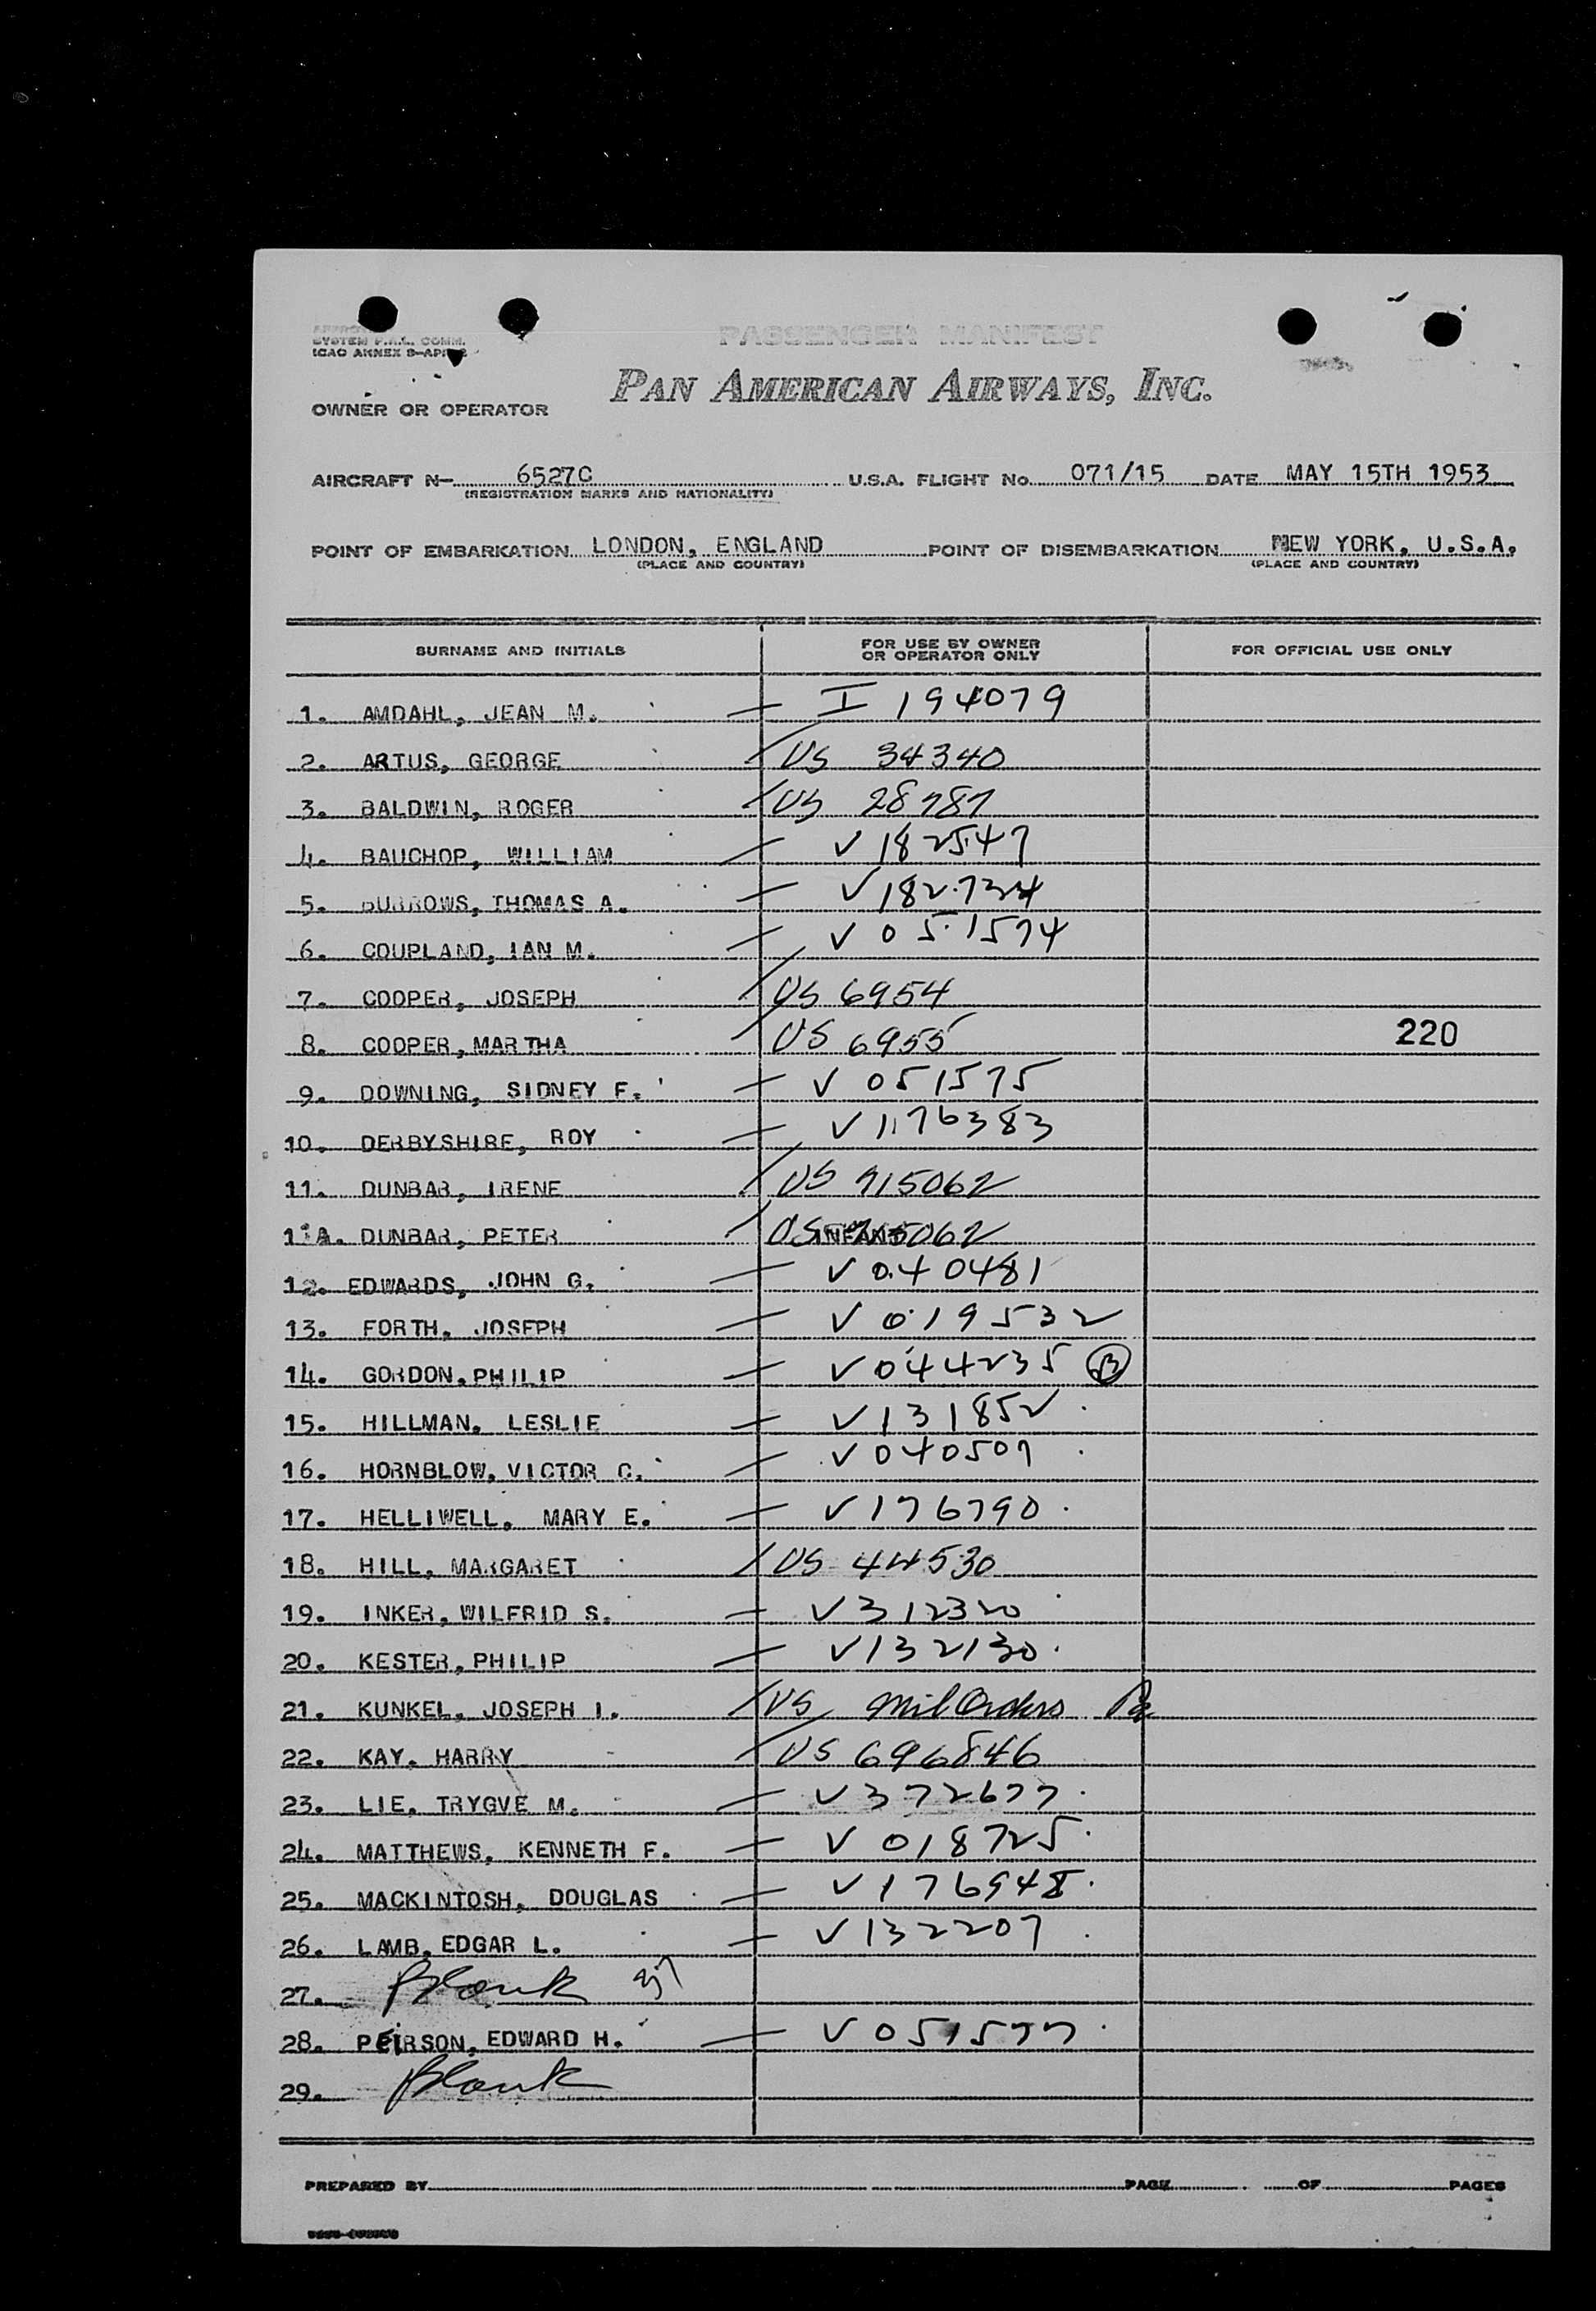 PASSENGER MANIFEST
SYSTEM F.A.L. COMM.
ICAO ANNEX 9-AP
PAN AMERICAN AIRWAYS, INC.
OWNER OR OPERATOR
AIRCRAFT N- 6527C U.S.A. FLIGHT No. 071/15 DATE MAY 15TH 1953
(REGISTRATION MARKS AND NATIONALITY)
POINT OF EMBARKATION LONDON, ENGLAND POINT OF DISEMBARKATION NEW YORK, U.S.A.
(PLACE AND COUNTRY) (PLACE AND COUNTRY)
SURNAME AND INITIALS FOR USE BY OWNER OR OPERATOR ONLY FOR OFFICIAL USE ONLY
1. AMDAHL, JEAN M. — I 194079
2. ARTUS, GEORGE / US 34340
3. BALDWIN, ROGER / US 28787
4. BAUCHOP, WILLIAM — V 182547
5. BURROWS, THOMAS A. — V 182734
6. COUPLAND, IAN M. — V 051574
7. COOPER, JOSEPH / US 6954
8. COOPER, MARTHA / US 6955 220
9. DOWNING, SIDNEY F. — V 051575
10. DERBYSHIRE, ROY — V 1176383
11. DUNBAR, IRENE / US 715062
11A. DUNBAR, PETER / US INFANT 715062
12. EDWARDS, JOHN G. — V 040481
13. FORTH, JOSEPH — V 019532
14. GORDON, PHILIP — V 044235 B
15. HILLMAN, LESLIE — V 131852
16. HORNBLOW, VICTOR C. — V 040507
17. HELLIWELL, MARY E. — V 176790
18. HILL, MARGARET / US 44530
19. INKER, WILFRID S. — V 312320
20. KESTER, PHILIP — V 132130
21. KUNKEL, JOSEPH I. / US Mil Orders
22. KAY, HARRY / US 696846
23. LIE, TRYGVE M. — V 372677
24. MATTHEWS, KENNETH F. — V 018725
25. MACKINTOSH, DOUGLAS — V 176948
26. LAMB, EDGAR L. — V 132207
27. Blank
28. PEIRSON, EDWARD H. — V 051577
29. Blank
PREPARED BY PAGE OF PAGES